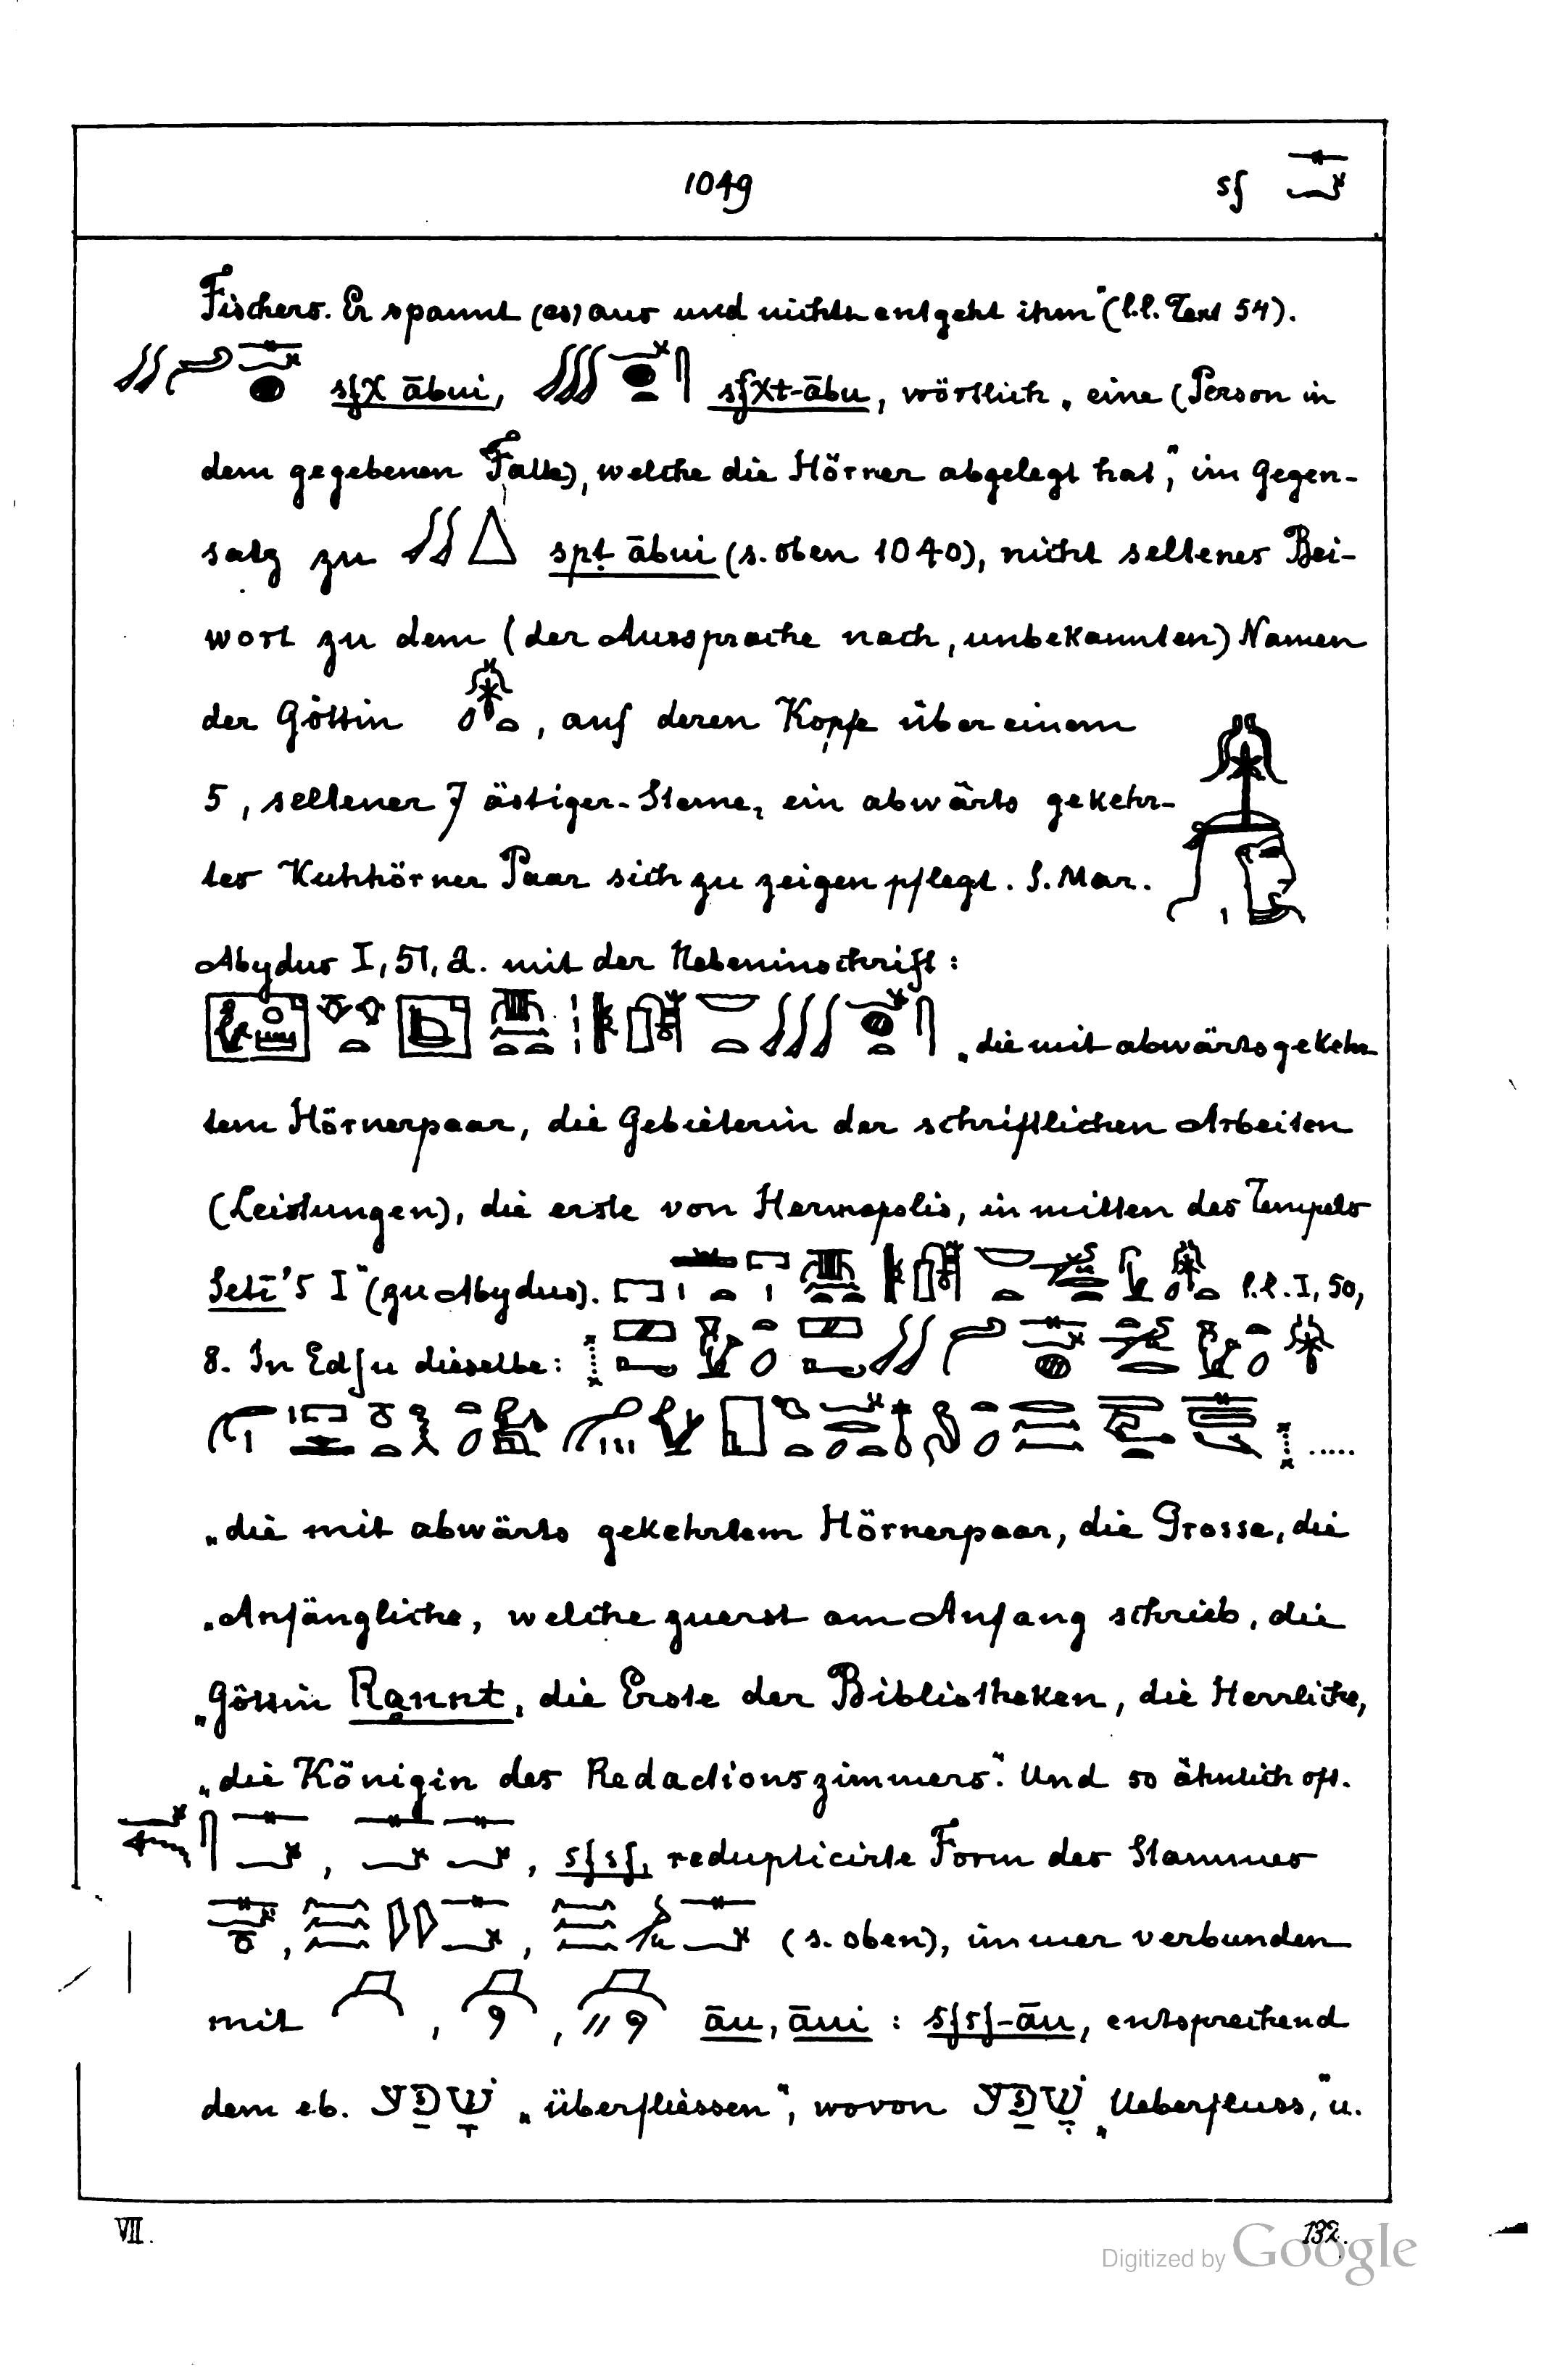 1049 sf
Fischers. Er spannt (es) aus und nichts entgeht ihm" (l.l. Text 54).
sfχ ābui, sfχt-ābu, wörtlich „eine (Person in
dem gegebenen Falle), welche die Hörner abgelegt hat", im Gegen-
satz zu spṭ ābui (s. oben 1040), nicht seltenes Bei-
wort zu dem (der Aussprache nach, unbekannten) Namen
der Göttin , auf deren Kopfe über einem
5, seltener 7 ästiger-Sterne, ein abwärts gekehr-
tes Kuhhörner Paar sich zu zeigen pflegt. S. Mar.
Abydus I, 51, a. mit der Nebeninschrift:
„die mit abwärts gekehr
tem Hörnerpaar, die Gebieterin der schriftlichen Arbeiten
(Leistungen), die erste von Hermopolis, in mitten des Tempels
Seti's I" (zu Abydus). l.l. I, 50,
8. In Edfu dieselbe:
.....
„die mit abwärts gekehrtem Hörnerpaar, die Grosse, die
„Anfängliche, welche zuerst am Anfang schrieb, die
„Göttin Rannt, die Erste der Bibliotheken, die Herrliche,
„die Königin des Redactionszimmers". Und so ähnlich oft.
, , sfsf, reduplicirte Form des Stammes
, , (s. oben), immer verbunden
mit , , āu, āui : sfsf-āu, entsprechend
dem eb. שָׁפַע „überfliessen", wovon שֶׁפַע „Ueberfluss", u.
VII. 132.
Digitized by Google